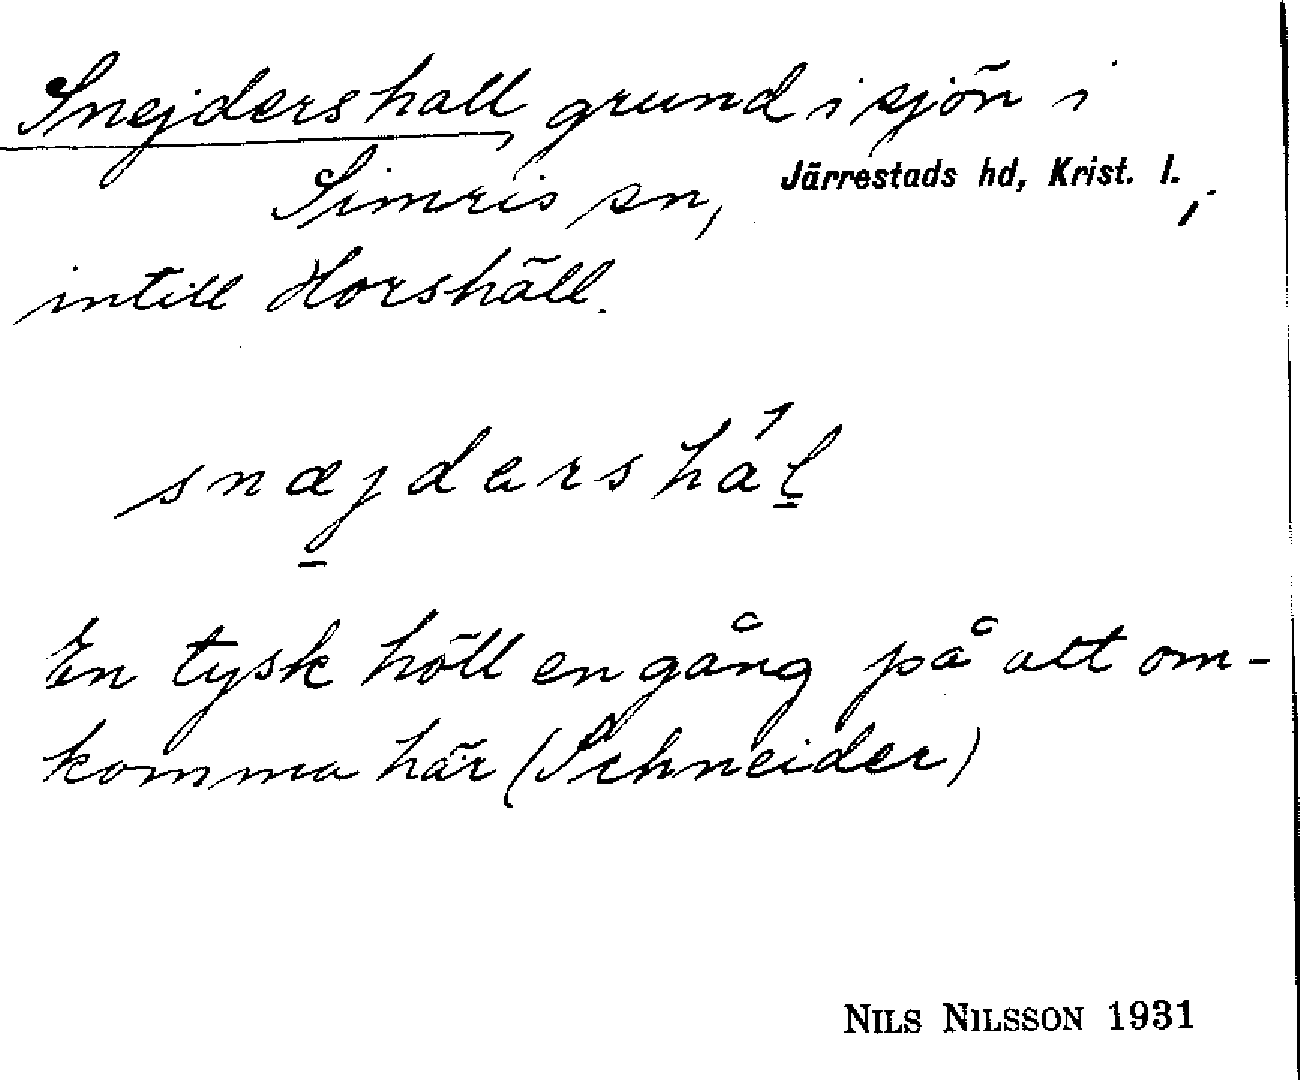 Snejdershall, grund i sjön i
Simris sn, Järrestads hd, Krist. l.,
intill Horshäll.
snæjdershál
En tysk höll en gång på att om-
komma här (Schneider)
NILS NILSSON 1931